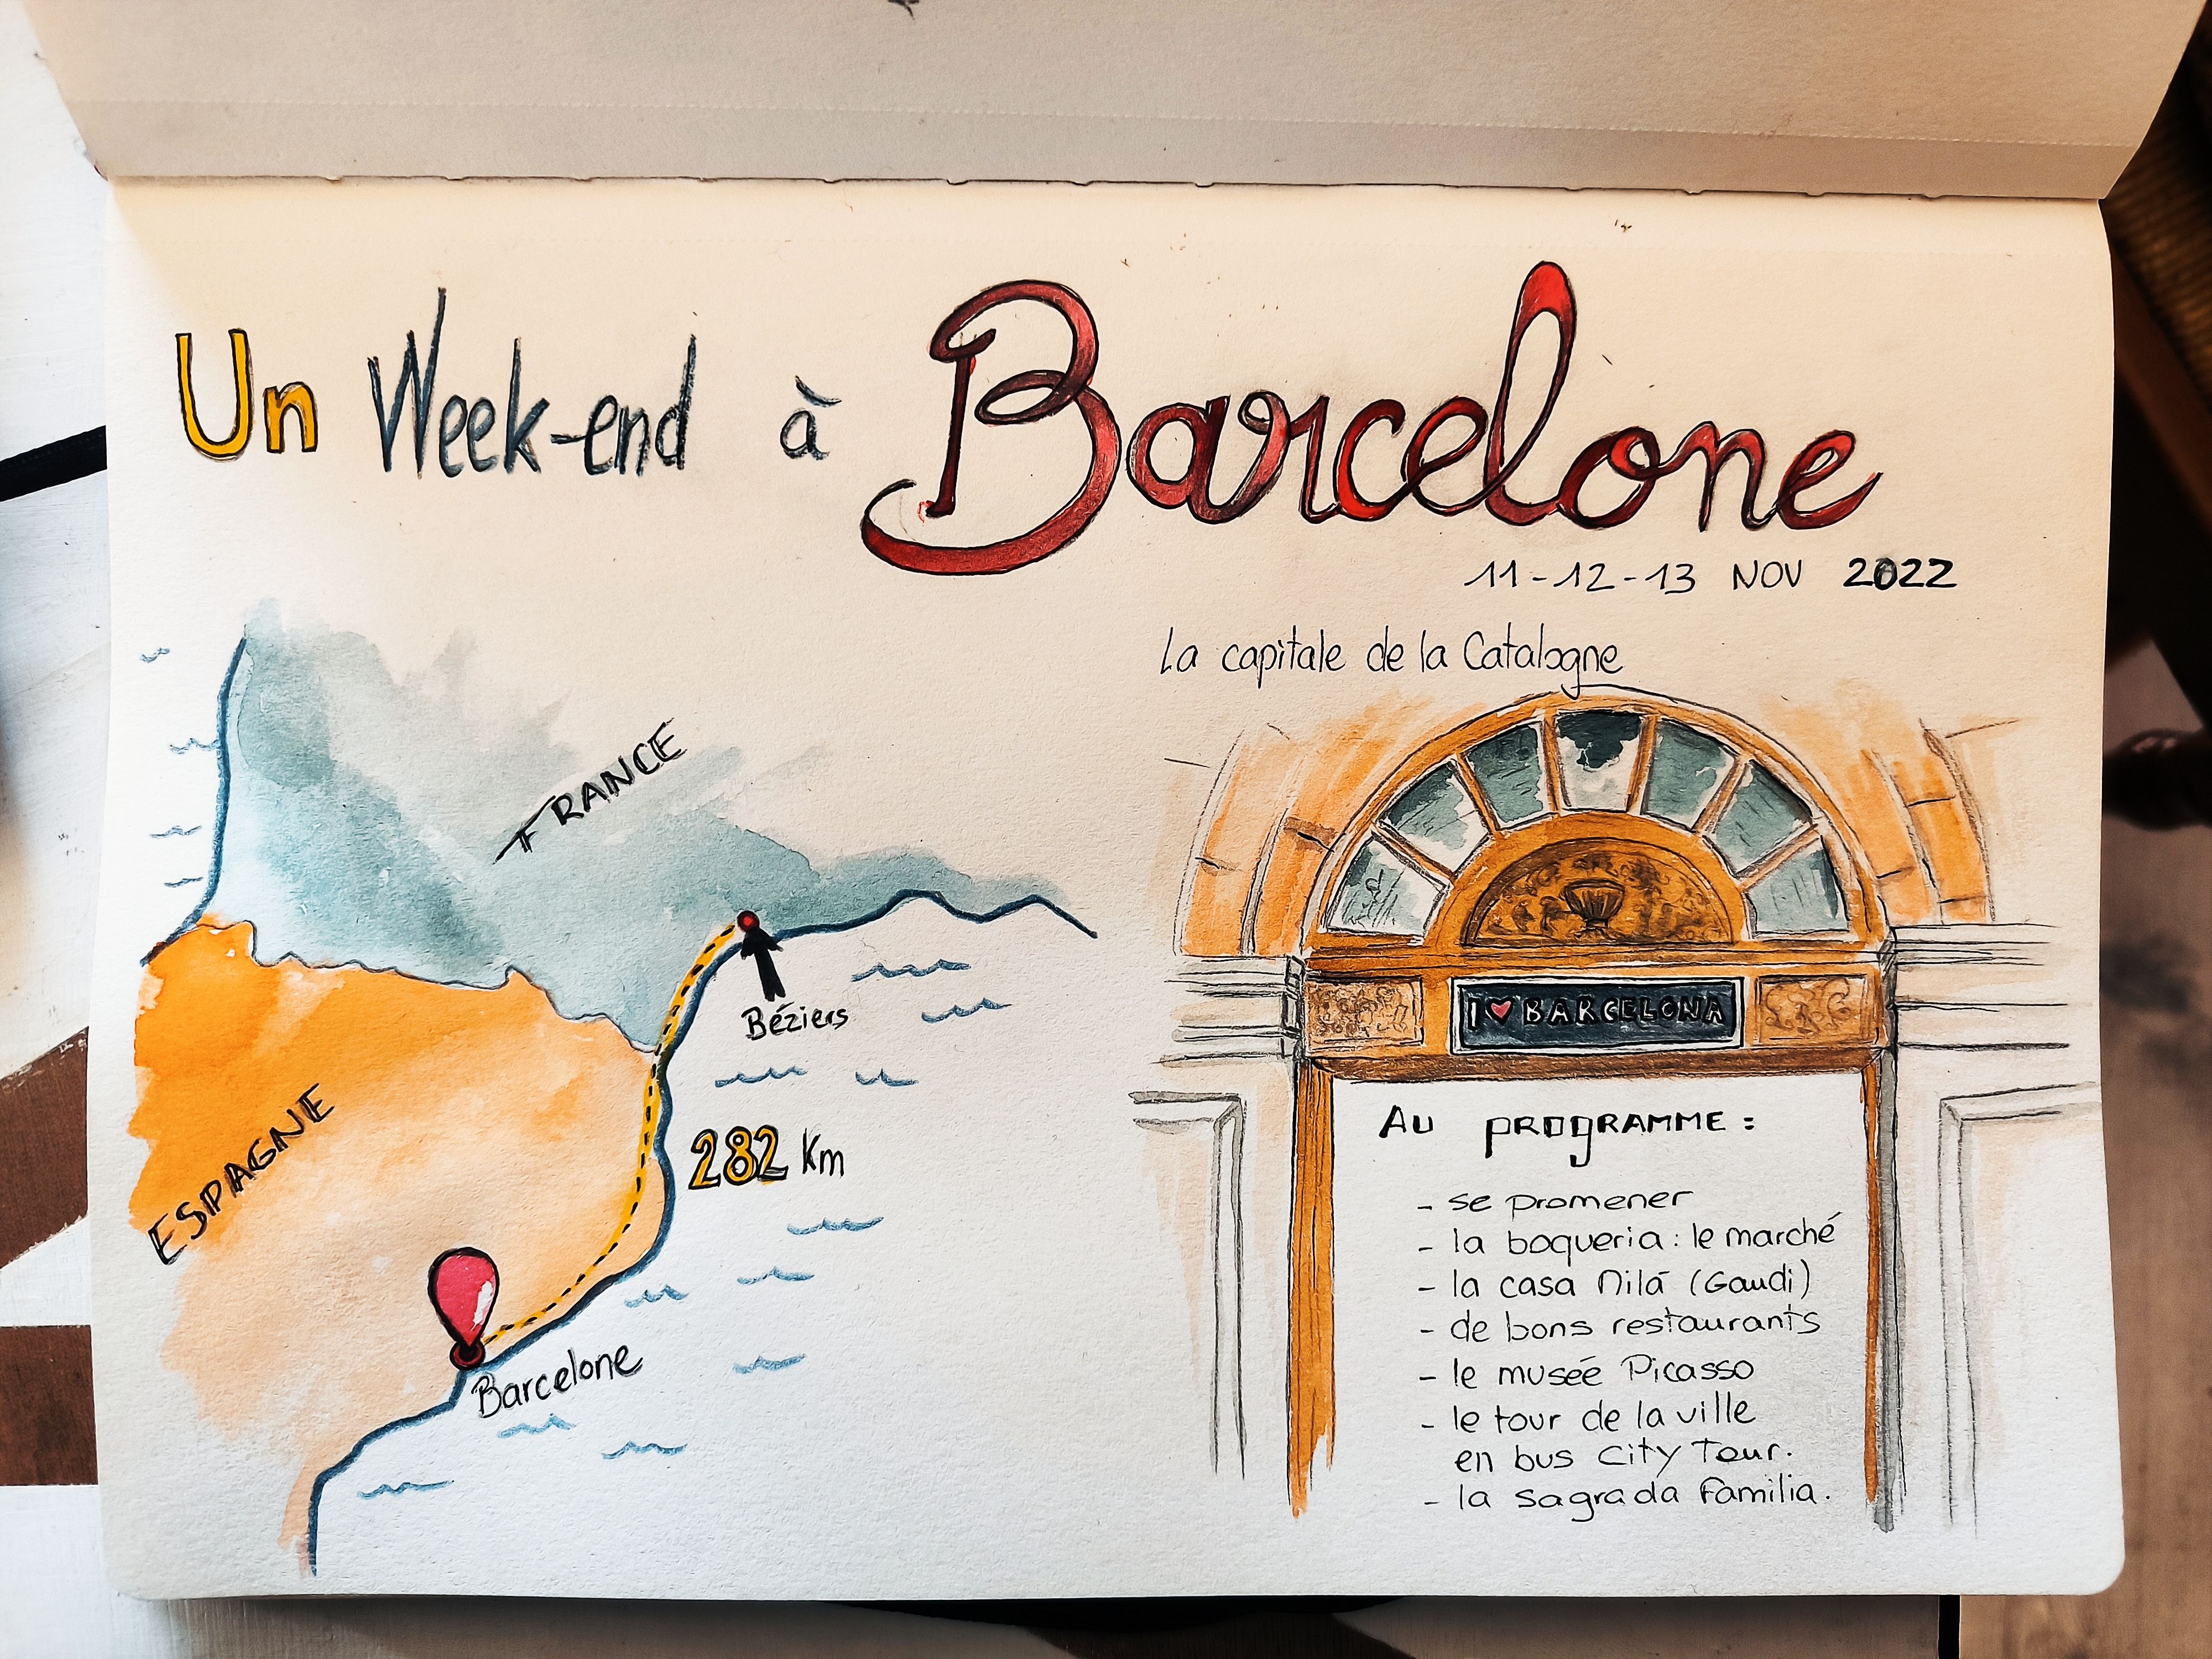 Un Week-end à Barcelone
11-12-13 NOV 2022
La capitale de la Catalogne
FRANCE
Béziers
ESPAGNE
282 Km
Barcelone
I ♥ BARCELONA
AU PROGRAMME :
- se promener
- la boqueria : le marché
- la casa Milá (Gaudi)
- de bons restaurants
- le musée Picasso
- le tour de la ville
en bus City Tour.
- la sagrada familia.